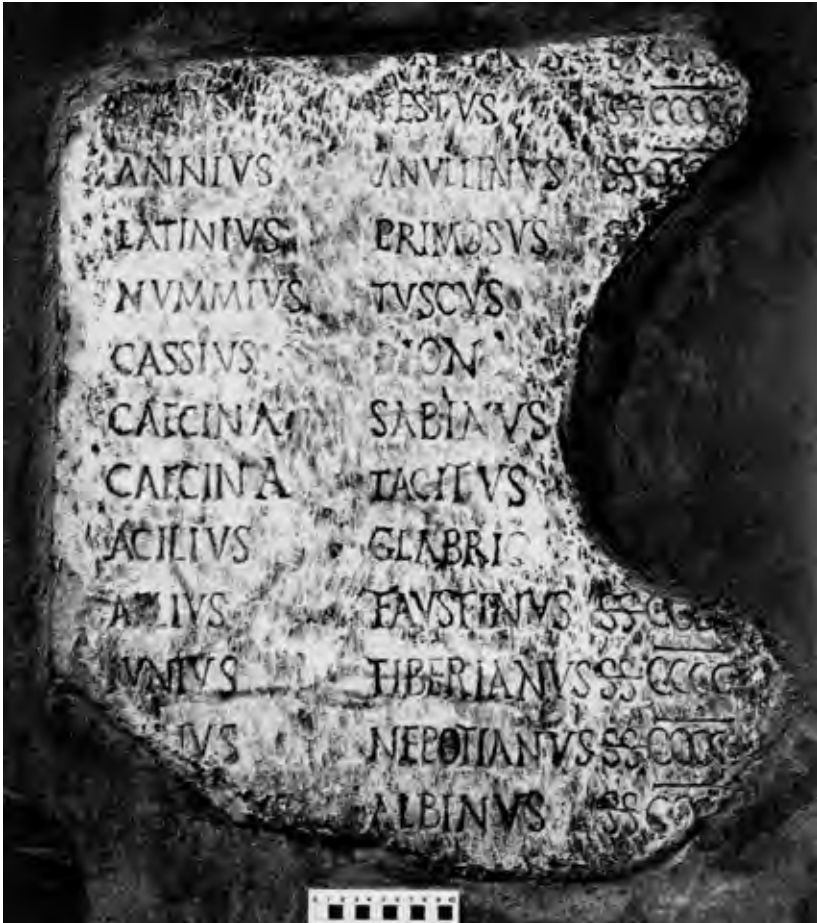 FESTVS SS CCCC
ANNIVS ANVLLINVS SS
LATINIVS PRIMOSVS
NVMMIVS TVSCVS
CASSIVS DION
CAECINA SABINVS
CAECINA TACITVS
ACILIVS GLABRIO
FAVSTINVS SS CCCC
IVNIVS TIBERIANVS SS CCCC
IVS NEPOTIANVS SS CCCC
ALBINVS SS